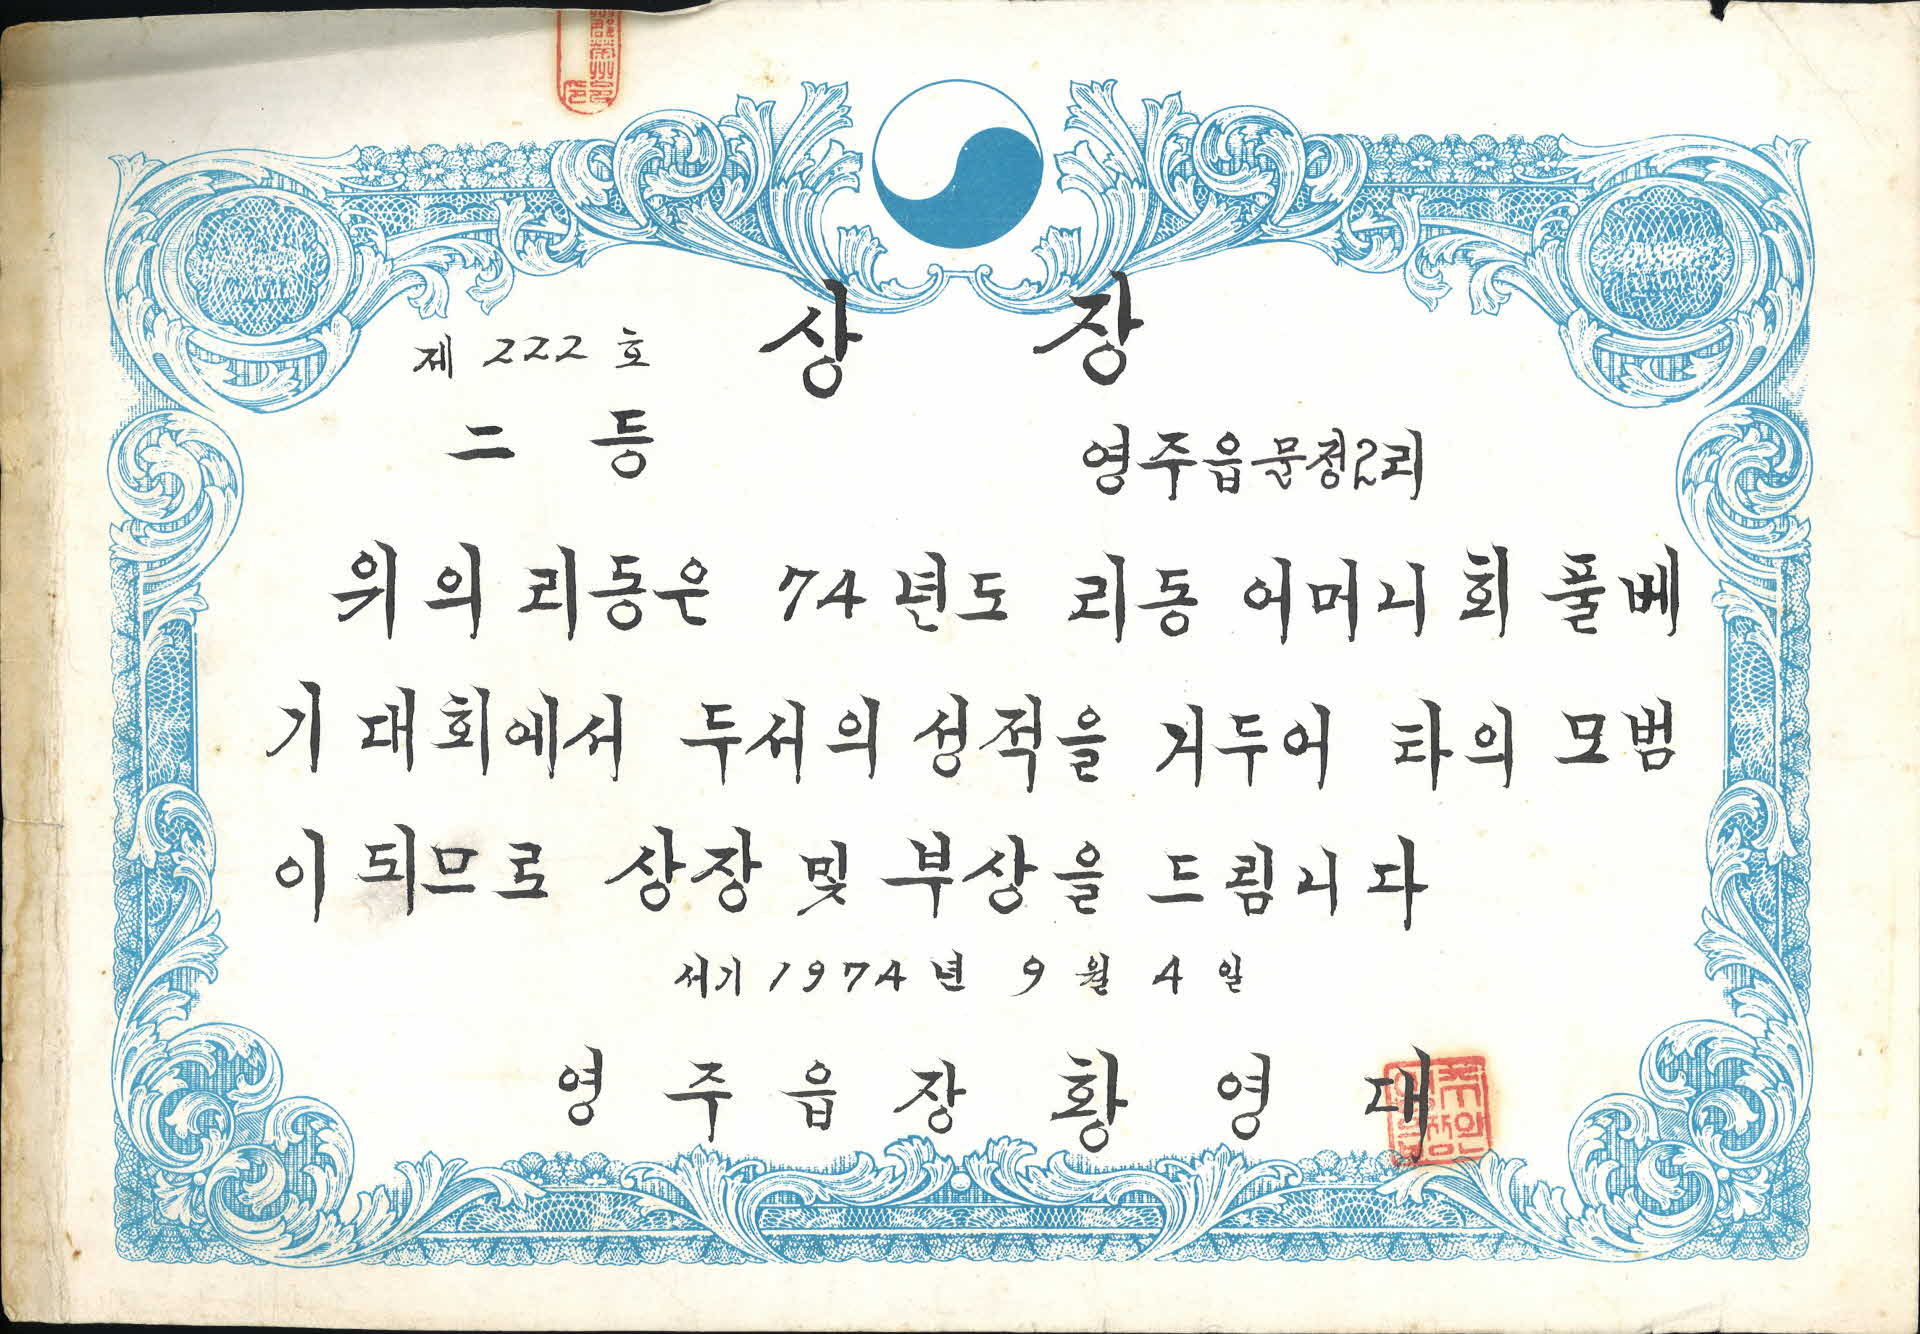 상 장
제 222 호
二 등
영주읍 문정2리
위의 리동은 74년도 리동 어머니회 풀베
기 대회에서 두서의 성적을 거두어 타의 모범
이 되므로 상장 및 부상을 드림니다
서기 1974년 9월 4일
영주읍장 황영대